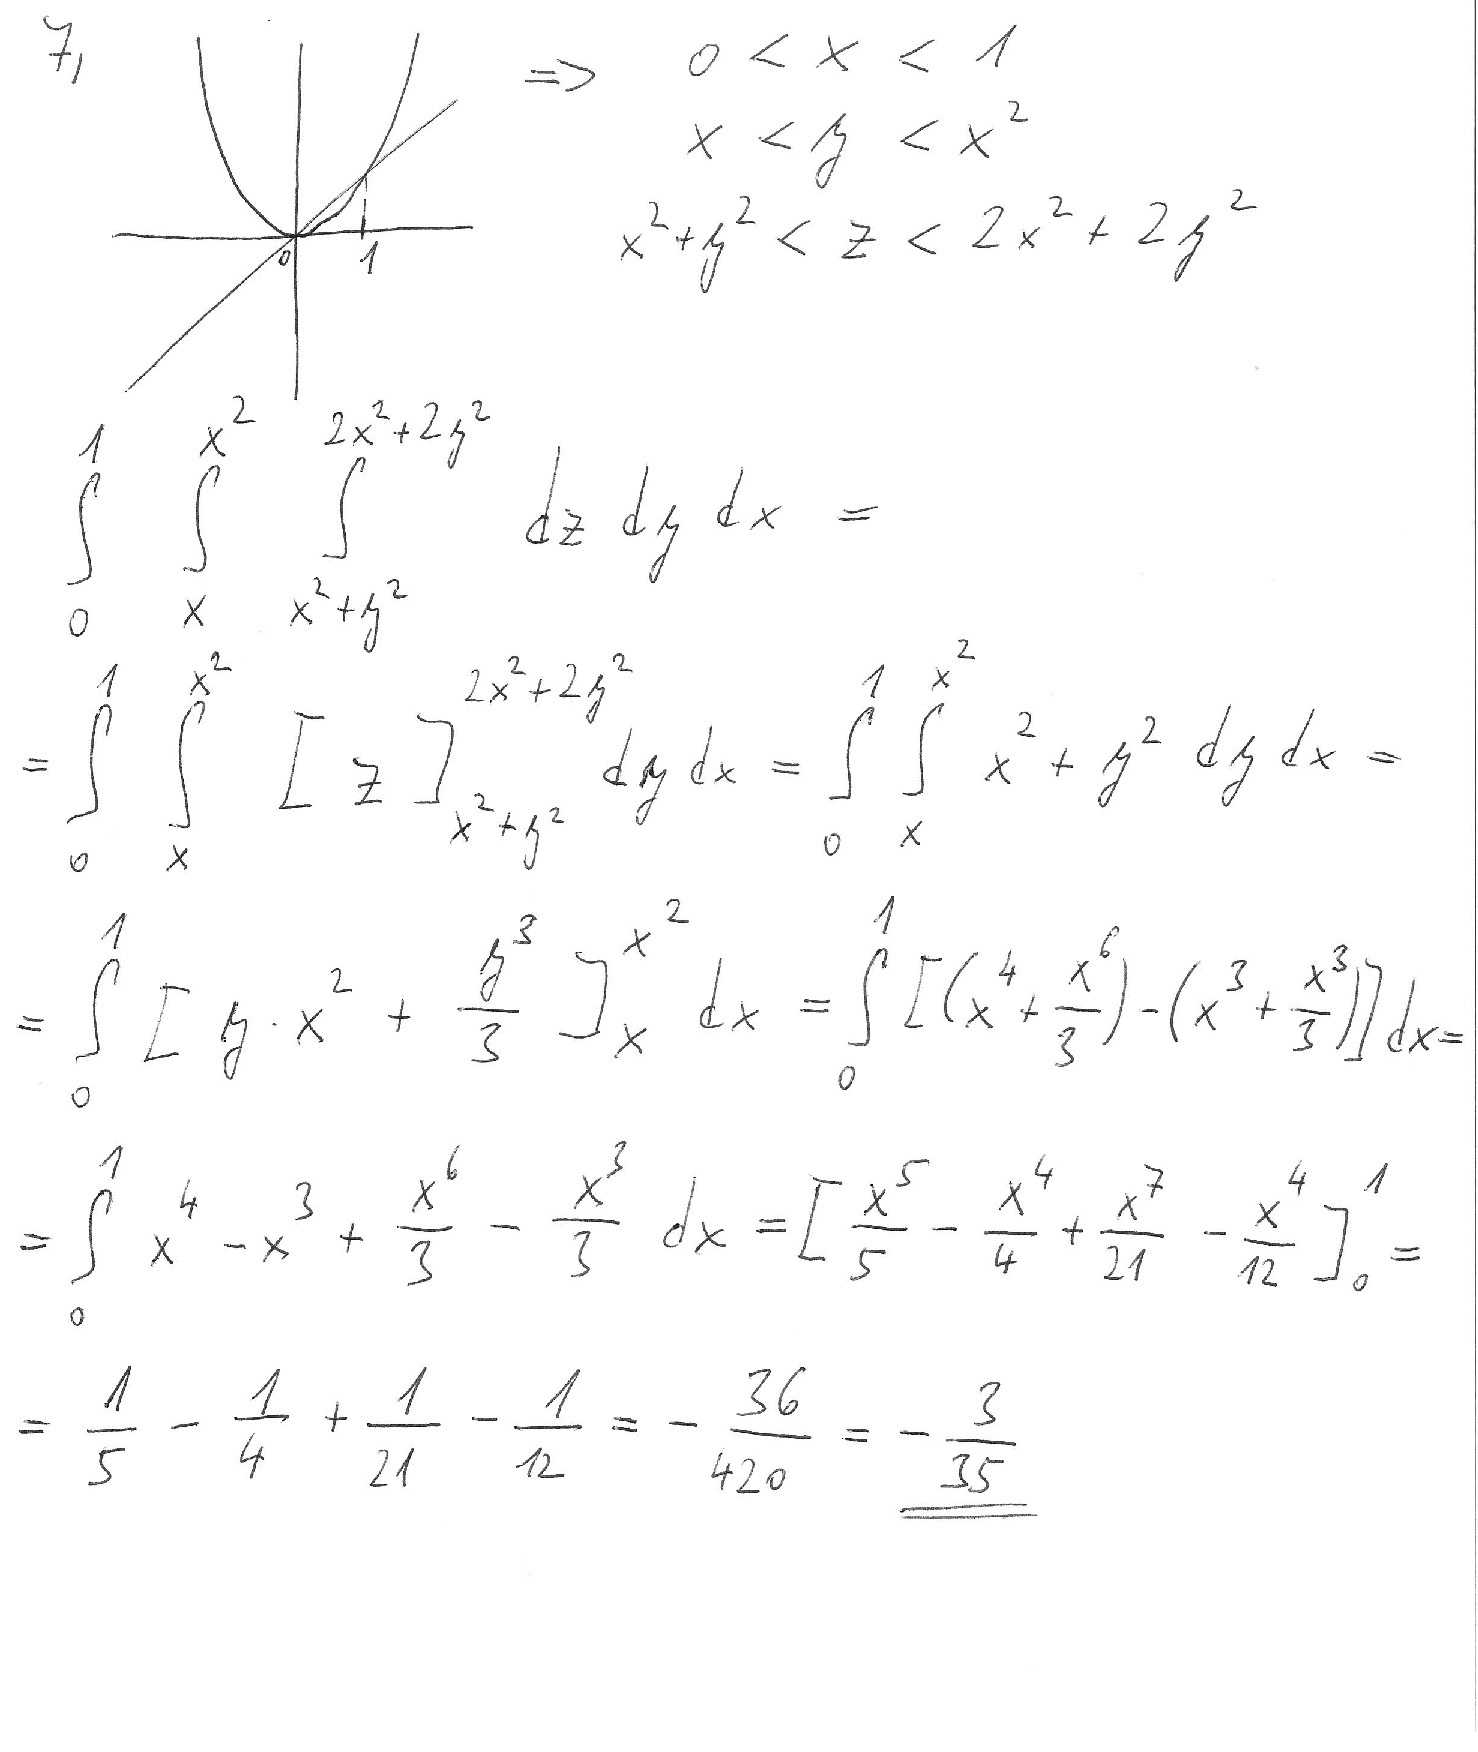 7, => 0 < x < 1
x < y < x²
x²+y² < z < 2x²+2y²
0 1
∫₀¹ ∫ₓ^(x²) ∫_(x²+y²)^(2x²+2y²) dz dy dx =
= ∫₀¹ ∫ₓ^(x²) [z]_(x²+y²)^(2x²+2y²) dy dx = ∫₀¹ ∫ₓ^(x²) x² + y² dy dx =
= ∫₀¹ [y · x² + y³/3]ₓ^(x²) dx = ∫₀¹ [(x⁴ + x⁶/3) - (x³ + x³/3)] dx =
= ∫₀¹ x⁴ - x³ + x⁶/3 - x³/3 dx = [x⁵/5 - x⁴/4 + x⁷/21 - x⁴/12]₀¹ =
= 1/5 - 1/4 + 1/21 - 1/12 = - 36/420 = - 3/35